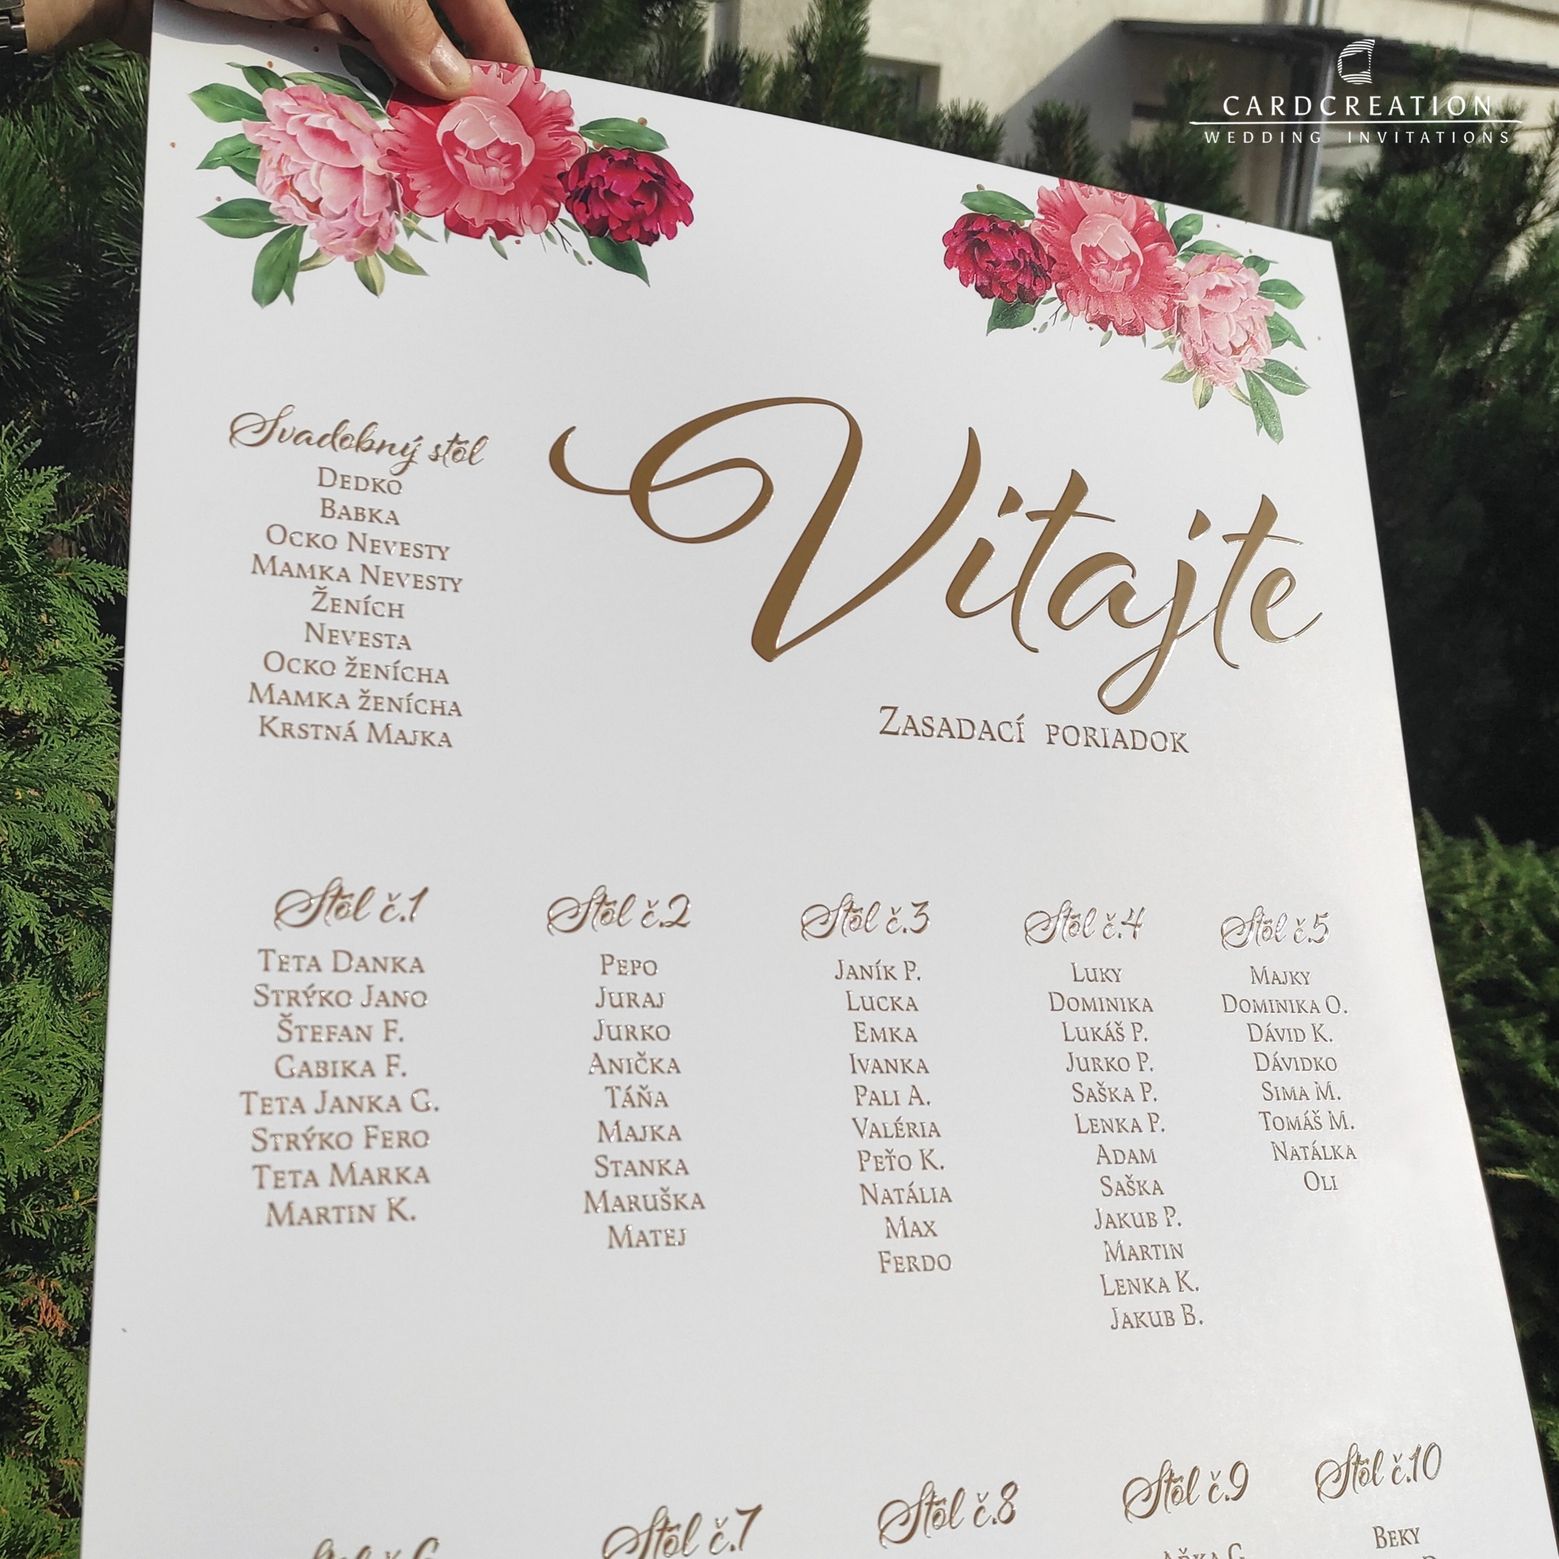 CARDCREATION
WEDDING INVITATIONS
Vitajte
Zasadací poriadok
Svadobný stôl
Dedko
Babka
Ocko Nevesty
Mamka Nevesty
Ženích
Nevesta
Ocko ženícha
Mamka ženícha
Krstná Majka
Stôl č.1
Teta Danka
Strýko Jano
Štefan F.
Gabika F.
Teta Janka G.
Strýko Fero
Teta Marka
Martin K.
Stôl č.2
Pepo
Juraj
Jurko
Anička
Táňa
Majka
Stanka
Maruška
Matej
Stôl č.3
Janík P.
Lucka
Emka
Ivanka
Pali A.
Valéria
Peťo K.
Natália
Max
Ferdo
Stôl č.4
Luky
Dominika
Lukáš P.
Jurko P.
Saška P.
Lenka P.
Adam
Saška
Jakub P.
Martin
Lenka K.
Jakub B.
Stôl č.5
Majky
Dominika O.
Dávid K.
Dávidko
Sima M.
Tomáš M.
Natálka
Oli
Stôl č.7
Stôl č.8
Stôl č.9
Stôl č.10
Beky